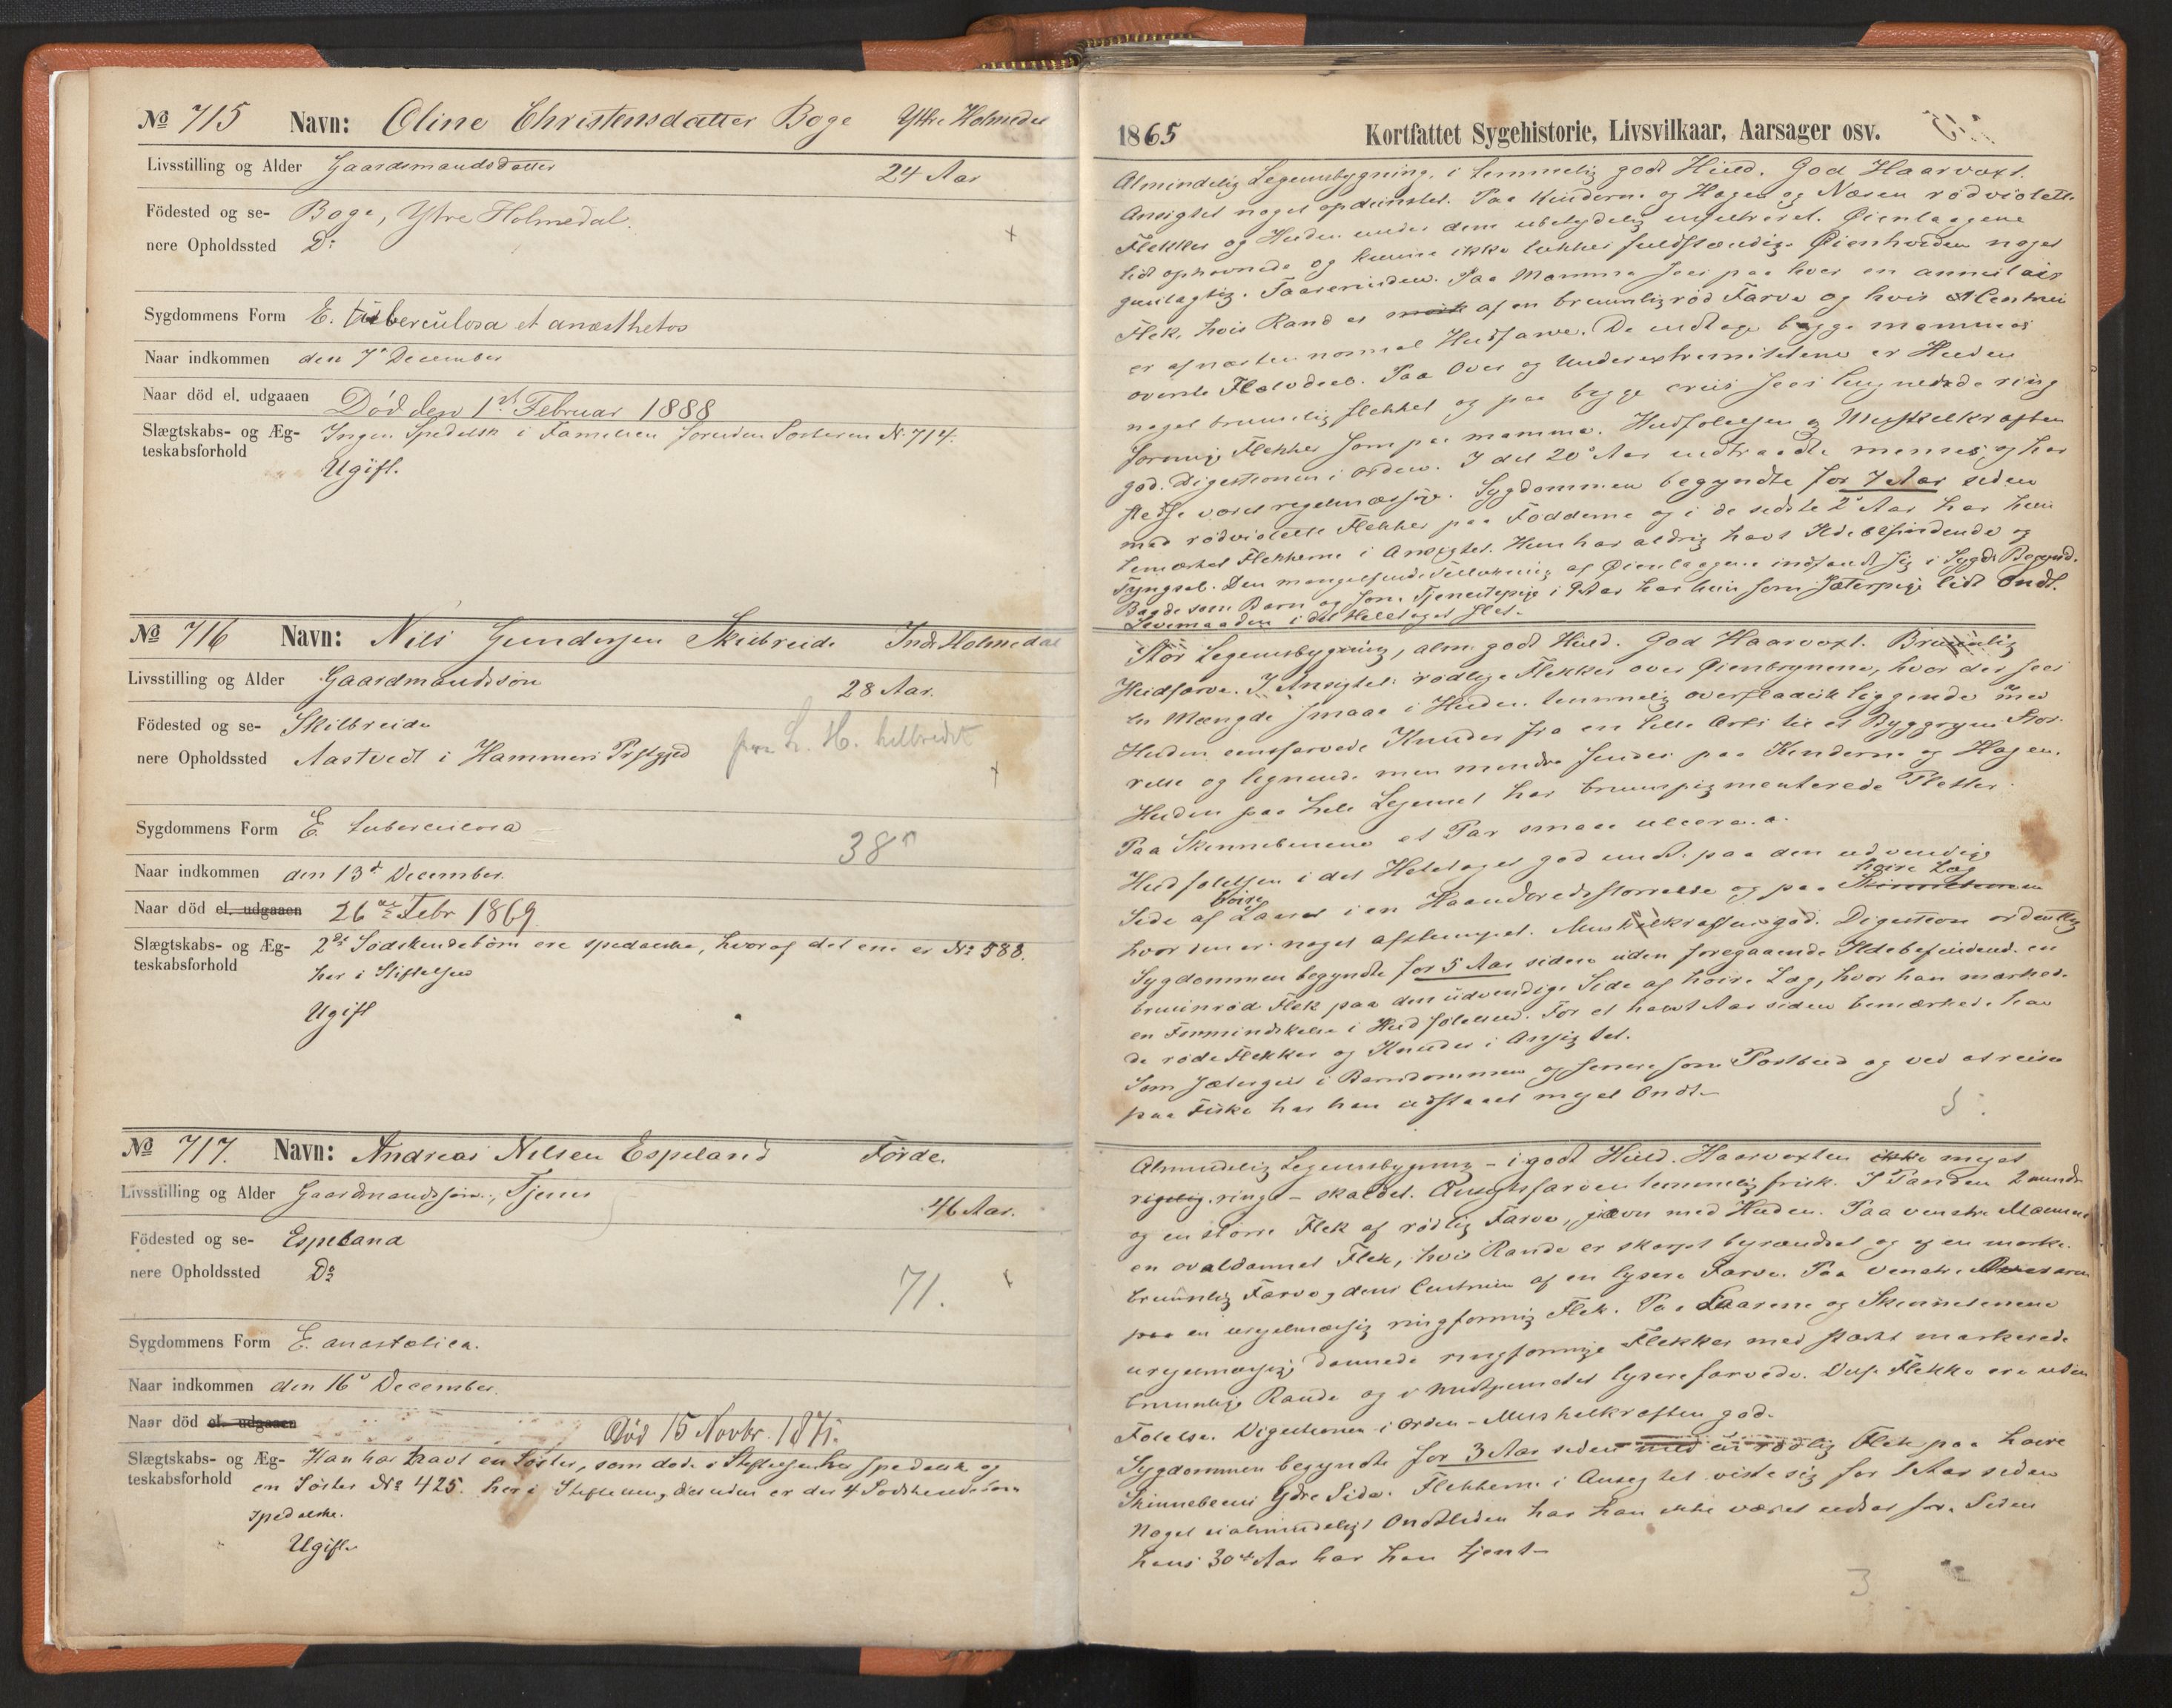 № 715 Navn: Oline Christensdatter Boge Yttre Holmedal
Livsstilling og Alder Gaardmandsdatter 24 Aar
Födested og se- Boge, Ytre Holmedal.
nere Opholdssted Do
Sygdommens Form E. tuberculosa et anæsthetos
Naar indkommen den 7de December
Naar död el. udgaaen Död den 1ste Februar 1888
Slægtskabs- og Æg- Ingen Spedalsk i Familien foruden Søsteren N. 714.
teskabsforhold Ugift.
№ 716 Navn: Nils Gundersen Skilbreide Indr Holmedal
Livsstilling og Alder Gaardmandssøn 28 Aar.
Födested og se- Skilbreide
nere Opholdssted Aastvedt i Hammers Prstgjed fra L. H. helbredet
Sygdommens Form E tuberculosa 38
Naar indkommen den 13de December.
Naar död el. udgaaen 26de Febr 1869
Slægtskabs- og Æg- 2de Sødskendebørn ere spedalske, hvoraf det ene er No 588.
teskabsforhold her i Stiftelsen
Ugift
№ 717. Navn: Andreas Nilsen Espeland Førde.
Livsstilling og Alder Gaardmandssøn, Tjener 46 Aar.
Födested og se- Espeland
nere Opholdssted Do 71.
Sygdommens Form E. anæstetica.
Naar indkommen den 16de December.
Naar död el. udgaaen Död 15 Novbr. 1871.
Slægtskabs- og Æg- Han har havt en Søster, som døde i Stiftelsen her spedalsk og
teskabsforhold en Søster No 425. her i Stiftelsen, desuden er der 4 Sødskendebørn
spedalske.
Ugift.
1865 Kortfattet Sygehistorie, Livsvilkaar, Aarsager osv.
Almindelig Legemsbygning, i temmelig godt Huld. God Haarvæxt.
Ansigtet noget opdunstet. Paa Kinderne og Hagen og Næsen rødviolette
Flekker og Huden under dem ubetydelig infiltreret. Øienlaagene
lidt ophovnede og kunne ikke lukkes fuldstændig. Øienhviden noget
guulagtig. Taarerinden. Paa Mamma sees paa hver en annulair
Flek, hvis Rand er mørk af en bruunligrød Farve og hvis Centrum
er af næsten normal Hudfarve. De indtage begge mammas
øverste Halvdeel. Paa Over og Underextremiteterne er Huden
noget bruunlig flekket og paa begge crus sees lignende ring
formige Flekker som paa mamma. Hudfølelsen og Muskelkraften
god. Digestionen i orden. I det 20de Aar indtraadte menses og har
stedse været regelmæssige. Sygdommen begyndte for 7 Aar siden
med rødviolette Flekker paa Fødderne og i de sidste 2de Aar har hun
bemærket Flekkerne i Ansigtet. Hun har aldrig havt Ildebefindende og
Tyngsel. Den mangelfulde Tillukning af Øienlaagene indfandt sig i Sygd. Begynd.
Baade som Barn og som Tjenestepige i 9 Aar har hun som Jæterpige lidt Ondt.
Levemaaden i det Heletaget slet.
Stor Legemsbygning, alm. godt Huld. God Haarvæxt. Bruunlig
Hudfarve. I Ansigtet rødlige Flekker over Øienbrynene, hvor der sees
en Mængde smaae i Huden temmelig overfladisk liggende med
Huden eensfarvede Knuder fra en liden Erts til et Byggryns Stør-
relse og lignende men mindre findes paa Kinderne og Hagen.
Huden paa hele Legemet har bruunpigmenterede Pletter.
Paa Skinnebenene et Par smaae ulcera.
Hudfølelsen i det Heletaget god undt. paa den udvendige
Side af høire Laaret i en Haandbreds størrelse og paa Skinnebenen høire Læg
hvor den er noget afstumpet. Muskelkraften god. Digestion ordentlig
Sygdommen begyndte for 5 Aar siden uden foregaaende Ildebefindend. en
bruunrød Flek paa den udvendige Side af høire Læg, hvor han mærked.
en Formindskelse i Hudfølelsen. For et halvt Aar siden bemærkede han
de røde Flekker og Knuder i Ansigtet.
Som Jætergut i Barndommen og senere som Postbud og ved at reise
paa Fiske har han udstaaet meget Ondt.
5.
Almindelig Legemsbygning - i godt Huld. Haarvæxten ikke meget
rigelig ringe - skaldet. Ansigtsfarven temmelig frisk. I Panden 2 mindr
og en større Flek af rødlig Farve, jævn med Huden. Paa venstre Mamma
en ovaldannet Flek, hvis Rande er skarpt begrændset og af en mørke-
bruunlig Farve og dens Centrum af en lysere Farve. Paa venstre Overarm
paa en uregelmæssig ringformig Flek. Paa Laarene og Skinnebenene
uregelmæssig dannede ringformige Flekker med stærkt markerede
bruunlige Rande og i Midtpunctet lysere farvede. Disse Flekke ere uden
Følelse. Digestionen i Orden - Muskelkraften god.
Sygdommen begyndte for 3 Aar siden med en rødlig Flek paa høire
Skinnebeens ydre Side. Flekkerne i Ansigtet viste sig for 1 Aar siden
Noget ualmindeligt Ondtliden har han ikke været udsat for. Siden
hans 30te Aar har han tjent.
3